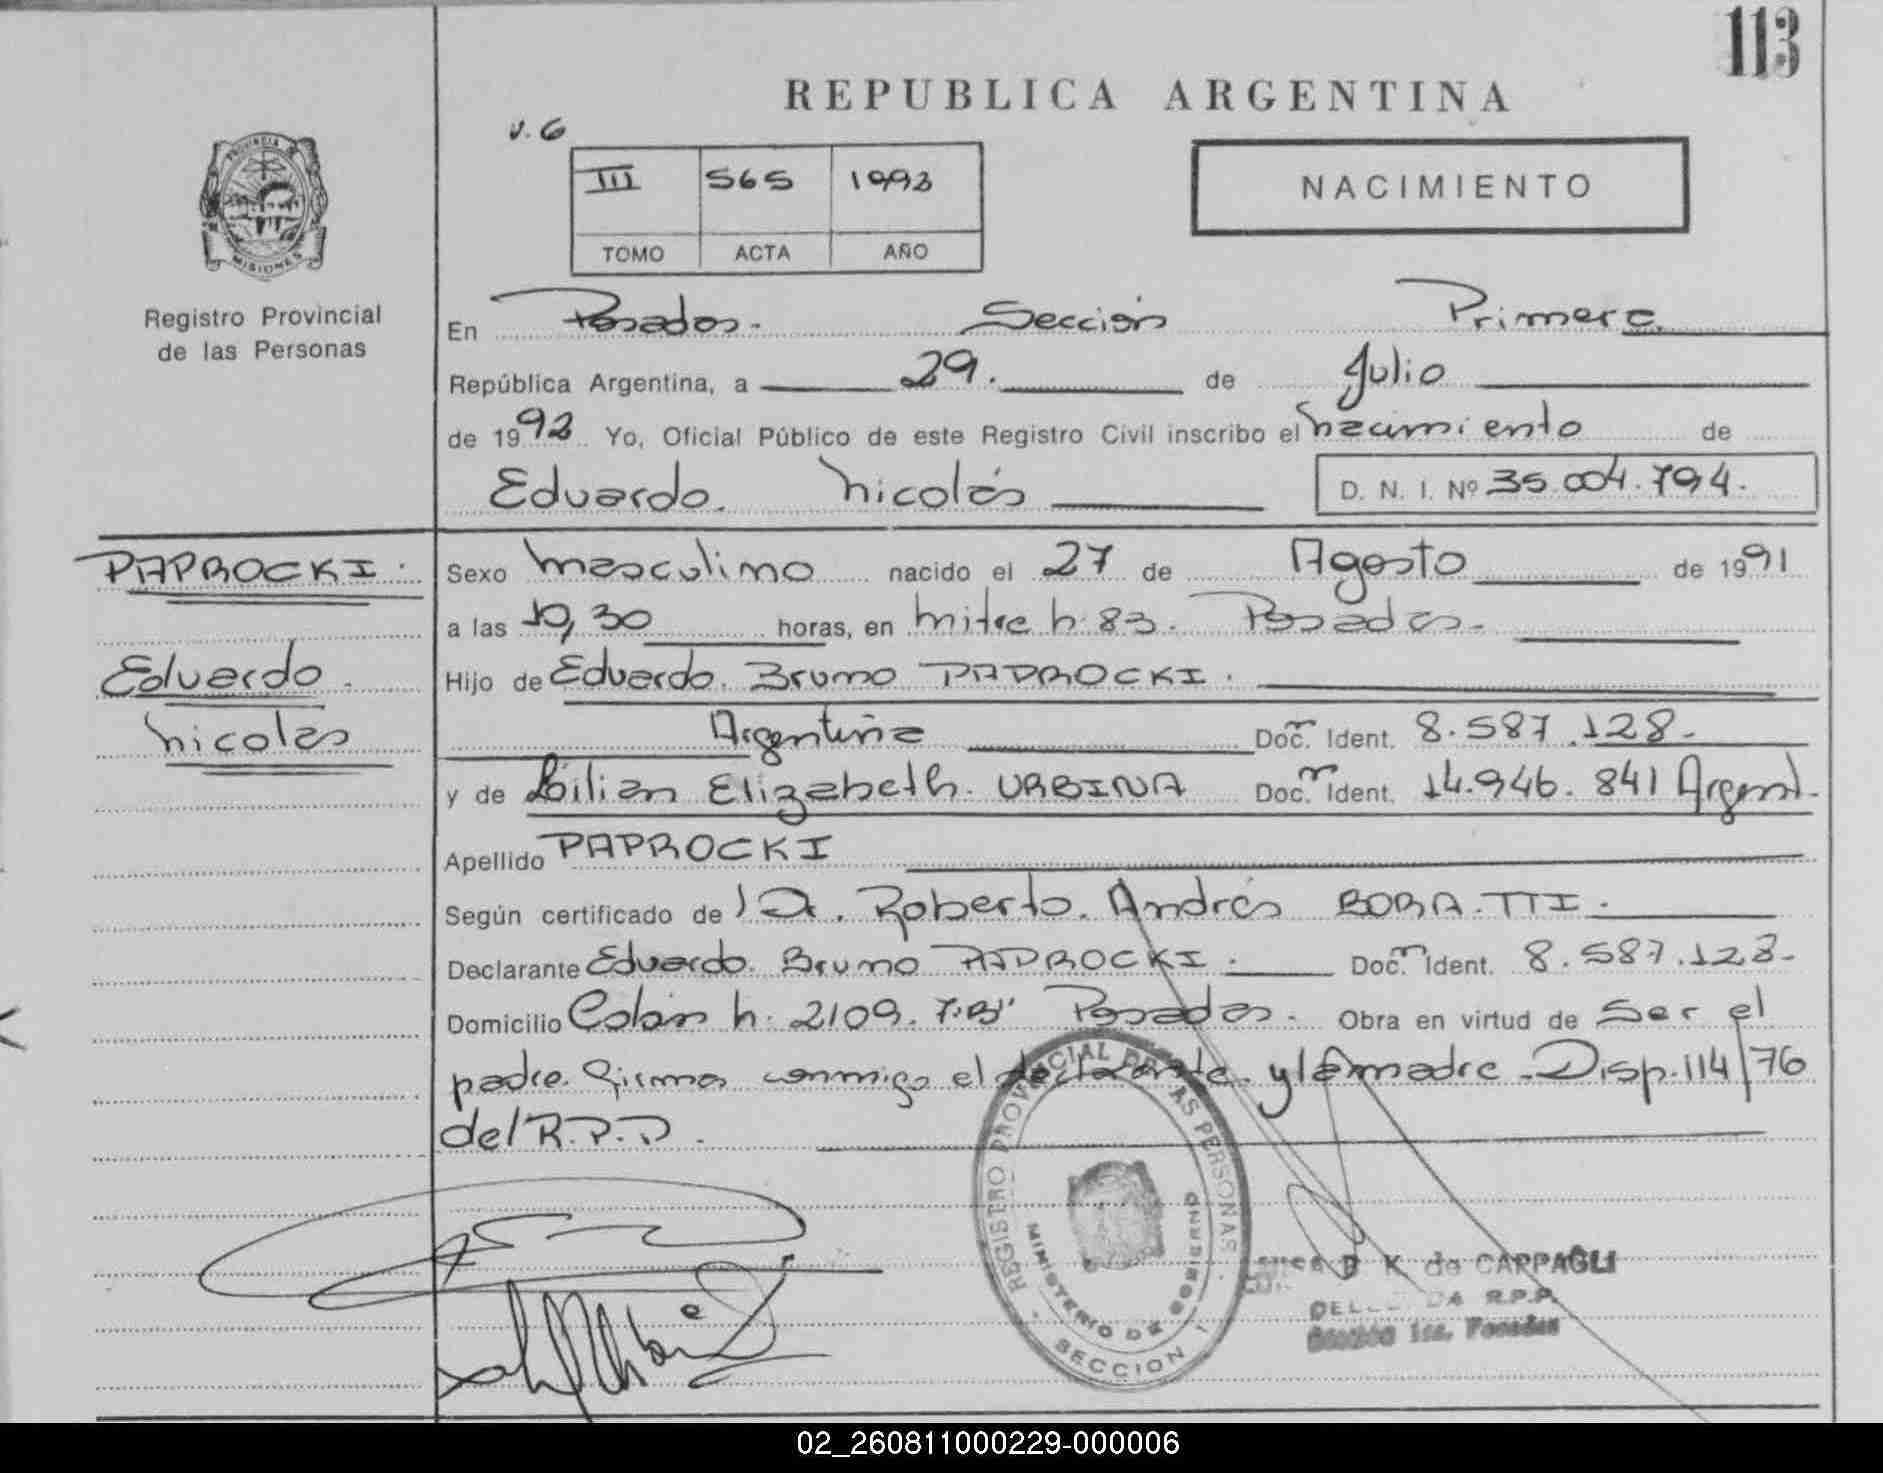 113
REPUBLICA ARGENTINA
v. 6
III 565 1992
TOMO ACTA AÑO
NACIMIENTO
PROVINCIA DE
MISIONES
Registro Provincial
de las Personas
En Posadas. Sección Primera
República Argentina, a 29. de Julio
de 1992 Yo, Oficial Público de este Registro Civil inscribo el nacimiento de
Eduardo. Nicolás D. N. I. Nº 35.004.794.
PAPROCKI.
Eduardo.
Nicolas
Sexo masculino nacido el 27 de Agosto de 1991
a las 10,30 horas, en Mitre n. 83. Posadas.
Hijo de Eduardo. Bruno PAPROCKI.
Argentina Doc. Ident. 8.587.128.
y de Lilian Elizabeth. URBINA Doc. Ident. 14.946.841 Argent.
Apellido PAPROCKI
Según certificado de Dr. Roberto. Andrés BORA.TTI.
Declarante Eduardo. Bruno PAPROCKI. Doc. Ident. 8.587.128.
Domicilio Colón n. 2109. 7.B" Posadas. Obra en virtud de Ser el
padre. Firman conmigo el declarante. y la madre. Disp. 114/76
del R.P.P.
REGISTRO PROVINCIAL DE LAS PERSONAS
MINISTERIO DE GOBIERNO
SECCION 1
B K de CARPAGLI
R.P.P.
Sección 1ra. Posadas
02_260811000229-000006